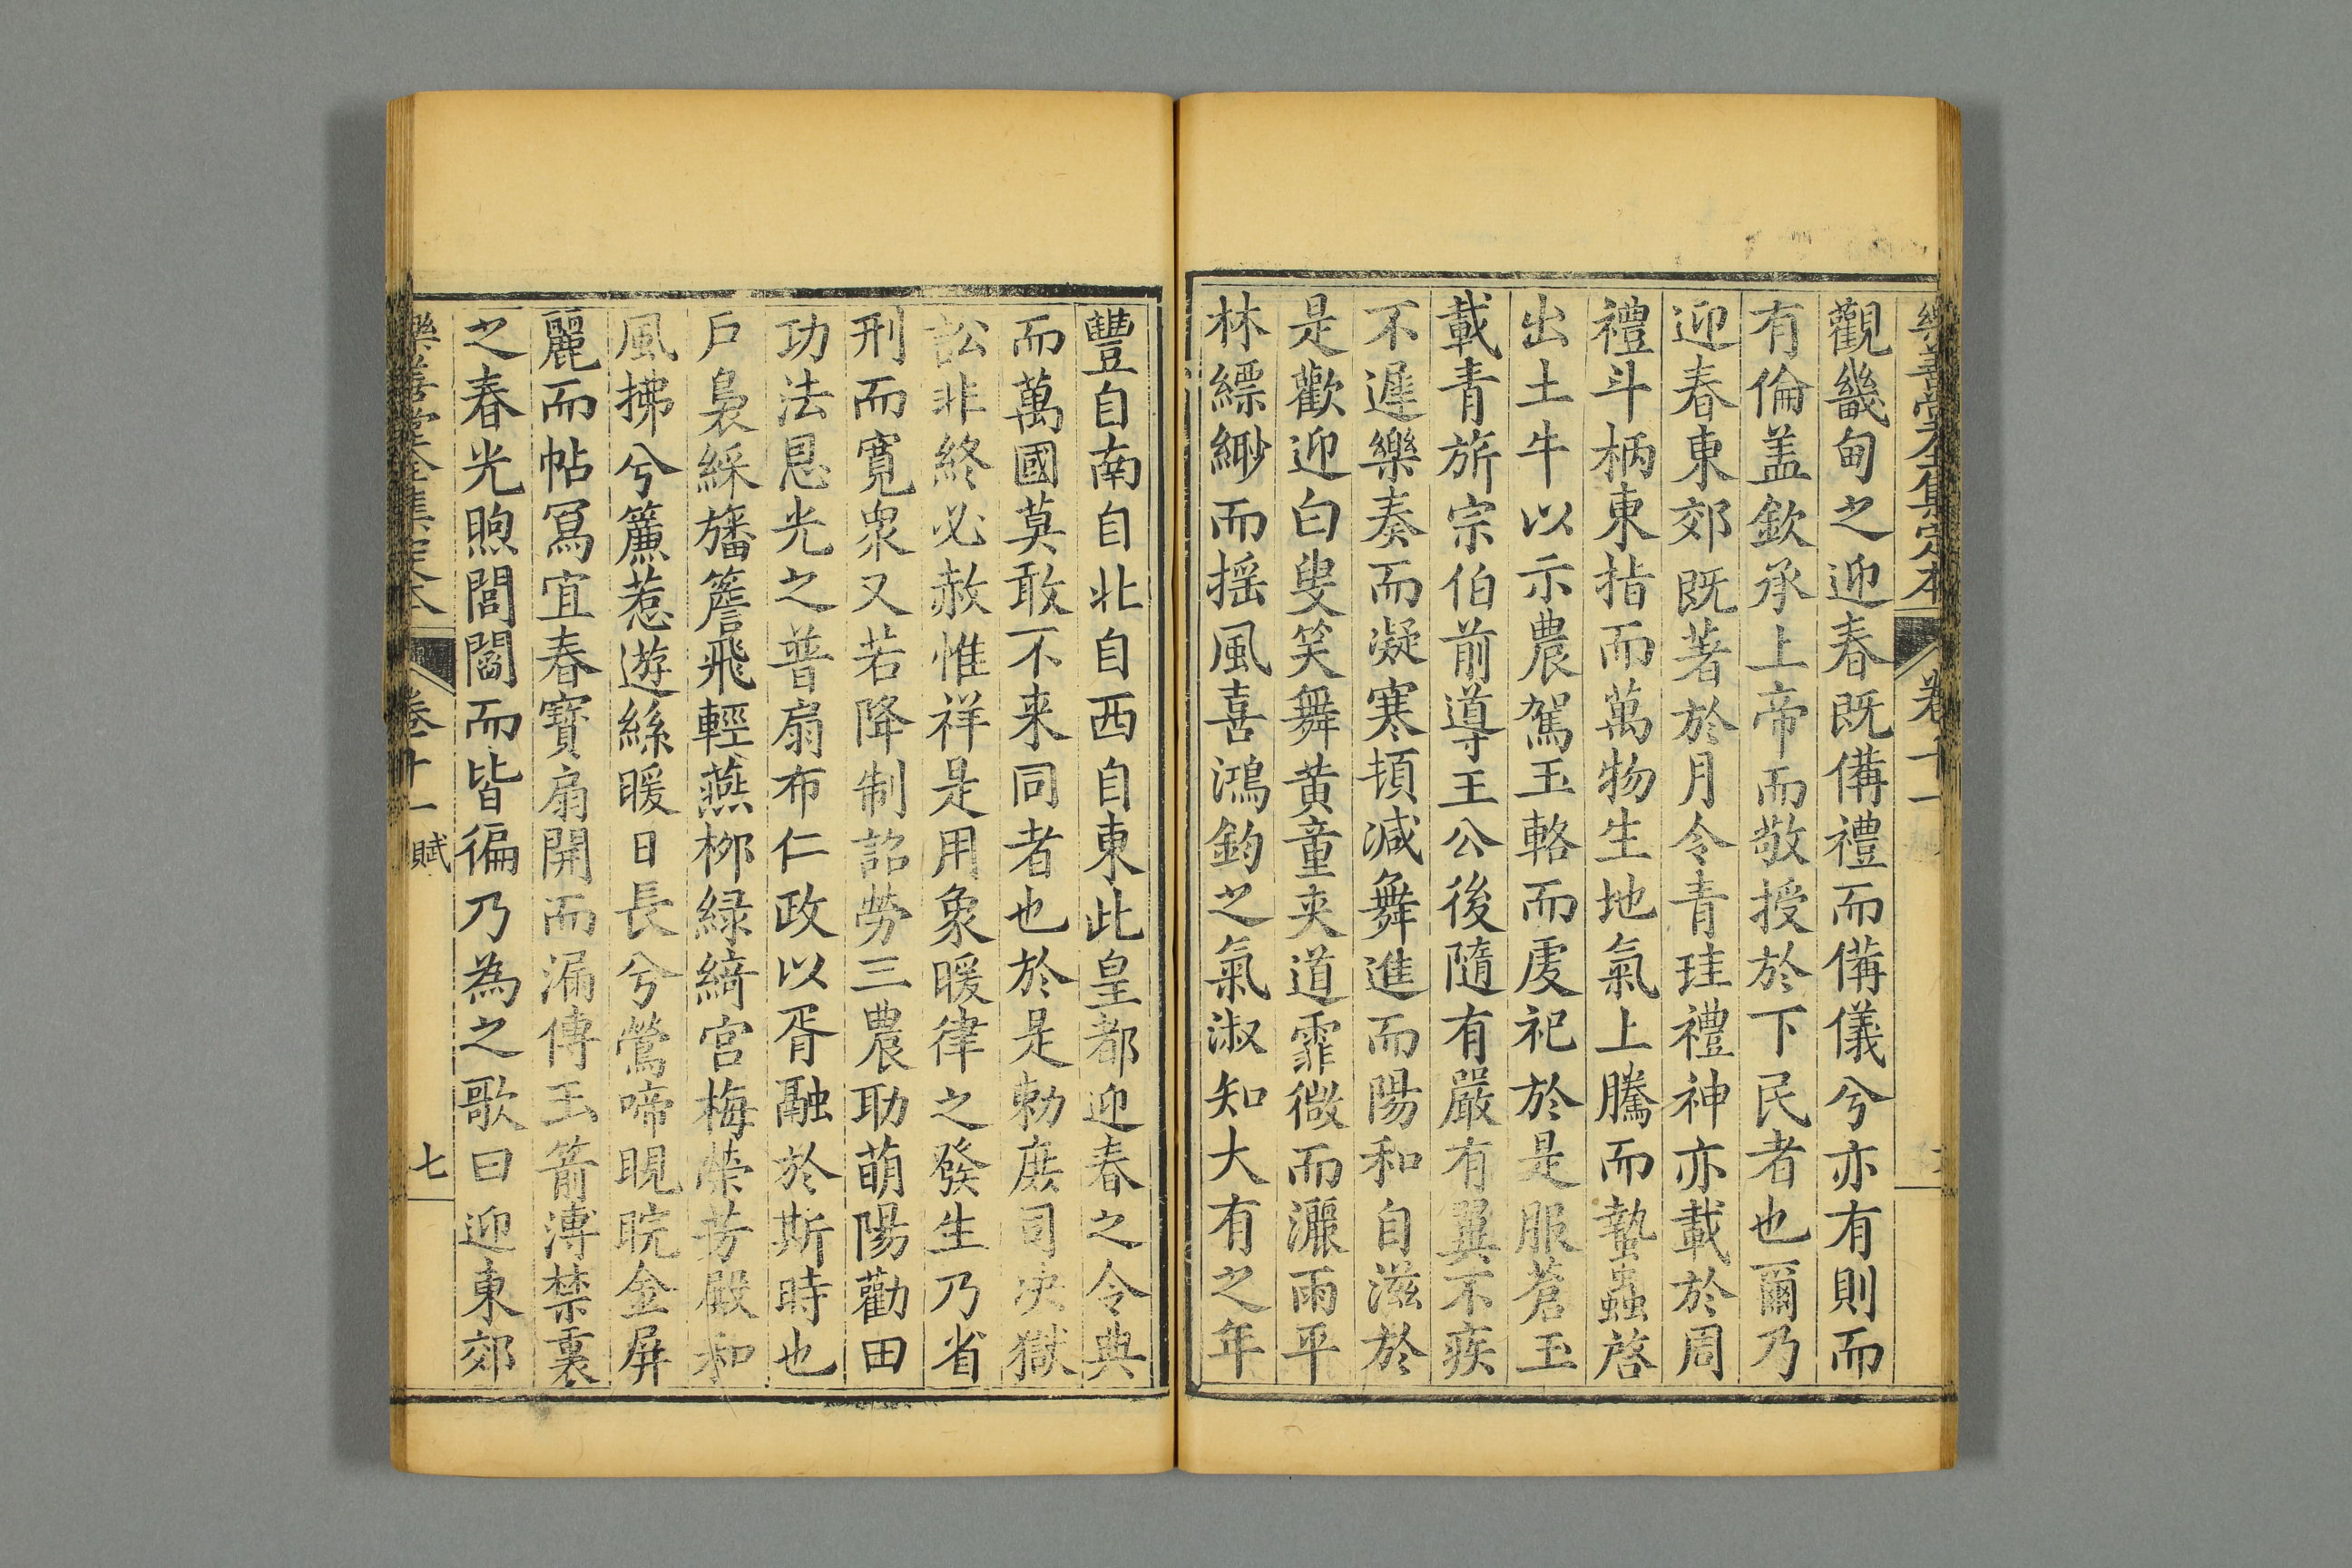 樂善堂全集定本 卷十一
觀畿甸之迎春既備禮而備儀兮亦有則而
有倫盖欽承上帝而敬授於下民者也爾乃
迎春東郊既著於月令青珪禮神亦載於周
禮斗柄東指而萬物生地氣上騰而蟄蟲啓
出土牛以示農駕玉輅而虔祀於是服蒼玉
載青旂宗伯前導王公後隨有嚴有翼不疾
不遲樂奏而凝寒頓減舞進而陽和自滋於
是歡迎白叟笑舞黃童夾道霏微而灑雨平
林縹緲而揺風喜鴻鈞之氣淑知大有之年
豐自南自北自西自東此皇都迎春之令典
而萬國莫敢不来同者也於是勅庶司决獄
訟非終必赦惟祥是用象暖律之發生乃省
刑而寛衆又若降制詔勞三農助萌陽勸田
功法恩光之普扇布仁政以胥融於斯時也
戶裊綵旛簷飛輕燕柳緑綺宮梅榮芳殿和
風拂兮簾惹遊絲暖日長兮鶯啼睍睆金屏
麗而帖寫宜春寶扇開而漏傳玉箭溥禁裏
之春光煦閭閻而皆徧乃為之歌曰迎東郊
樂善堂全集定本 卷十一 賦 七